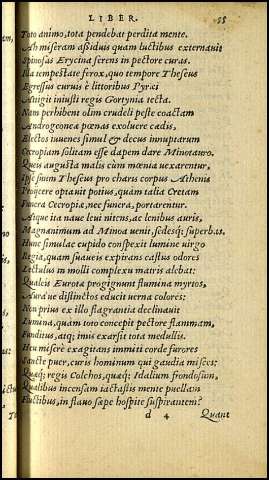 LIBER. 55
Toto animo, tota pendebat perdita mente.
Ah miseram aßiduis quam luctibus externauit
Spinosas Erycina serens in pectore curas.
Illa tempestate ferox, quo tempore Theseus
Egressus curuis è littoribus Pyræi
Attigit iniusti regis Gortynia tecta.
Nam perhibent olim crudeli peste coactam
Androgeoneæ pœnas exoluere cædis,
Electos iuuenes simul & decus innuptarum
Cecropiam solitam esse dapem dare Minotauro.
Queis angusta malis cùm mœnia uexarentur,
Ipse suum Theseus pro charis corpus Athenis
Proijcere optauit potius, quàm talia Cretam
Funera Cecropiæ, nec funera, portarentur.
Atque ita naue leui nitens, ac lenibus auris,
Magnanimum ad Minoa uenit, sedesq; superbas.
Hunc simulac cupido conspexit lumine uirgo
Regia, quam suaueis expirans castus odores
Lectulus in molli complexu matris alebat:
Qualeis Eurotæ progignunt flumina myrtos,
Auráue distinctos educit uerna colores:
Non prius ex illo flagrantia declinauit
Lumina, quàm toto concepit pectore flammam,
Funditus, atq; imis exarsit tota medullis.
Heu miserè exagitans immiti corde furores
Sancte puer, curis hominum qui gaudia misces:
Quæq; regis Colchos, quæq; Idalium frondosum,
Qualibus incensam iactastis mente puellam
Fluctibus, in flauo sæpe hospite suspirantem?
d 4 Quant